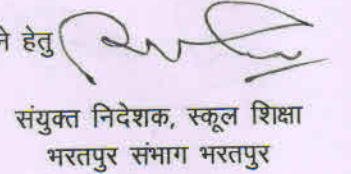 ने हेतु
संयुक्त निदेशक, स्कूल शिक्षा
भरतपुर संभाग भरतपुर